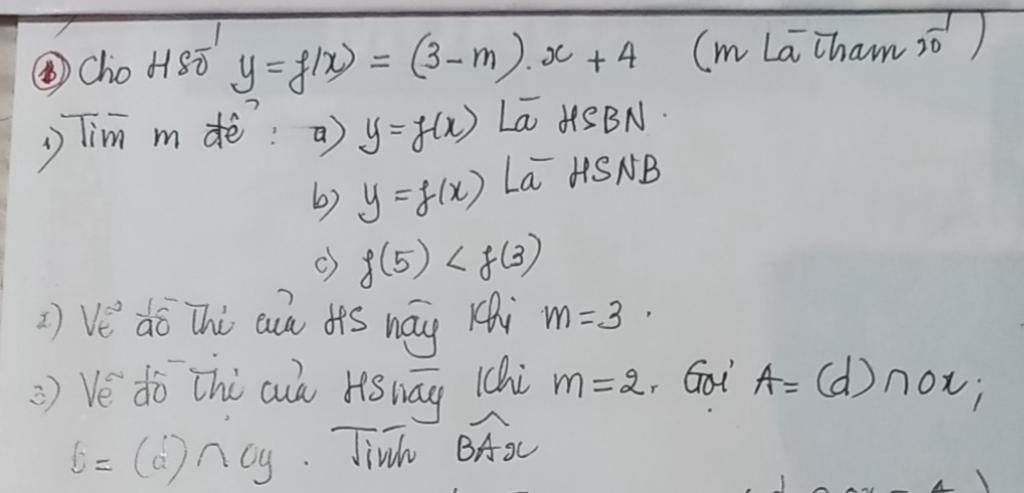 1) Cho HSố y = f(x) = (3 - m).x + 4 (m Là Tham số)
1) Tìm m để : a) y = f(x) Là HSBN.
b) y = f(x) Là HSNB
c) f(5) < f(3)
2) Vẽ đồ Thị của HS này Khi m = 3.
3) Vẽ đồ Thị của HS này Khi m = 2. Gọi A = (d) ∩ ox;
B = (d) ∩ oy. Tính \widehat{BAx}